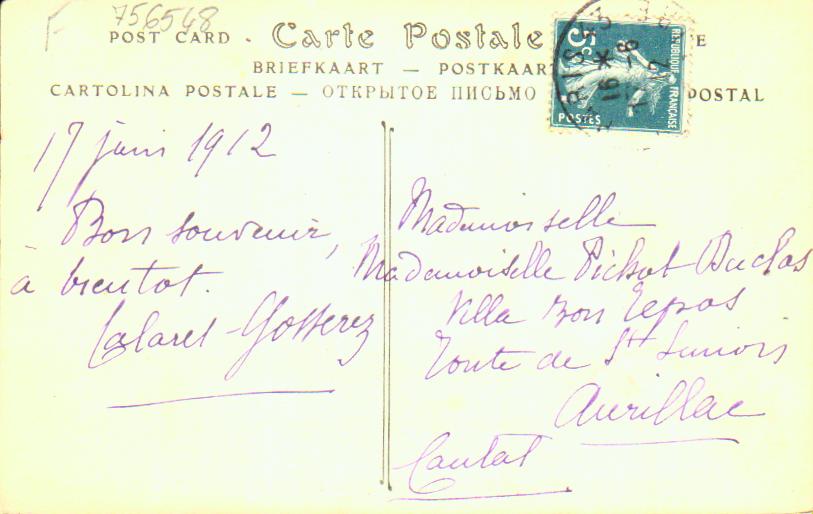 F
756548
POST CARD - Carte Postale
BRIEFKAART — POSTKAAR
CARTOLINA POSTALE — ОТКРЫТОЕ ПИСЬМО
POSTAL
5c
REPUBLIQUE FRANÇAISE
POSTES
17 juin 1912
Bon souvenir,
à bientot.
Mademoiselle
Mademoiselle Pichot Duclas
Villa Bon Repos
Route de St
Aurillac
Cantal